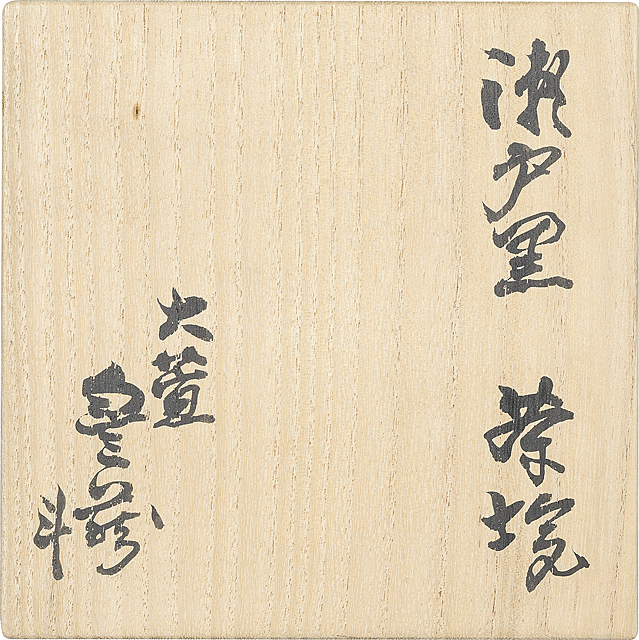 瀬戸黒 茶垸
大萱
豊蔵
斗